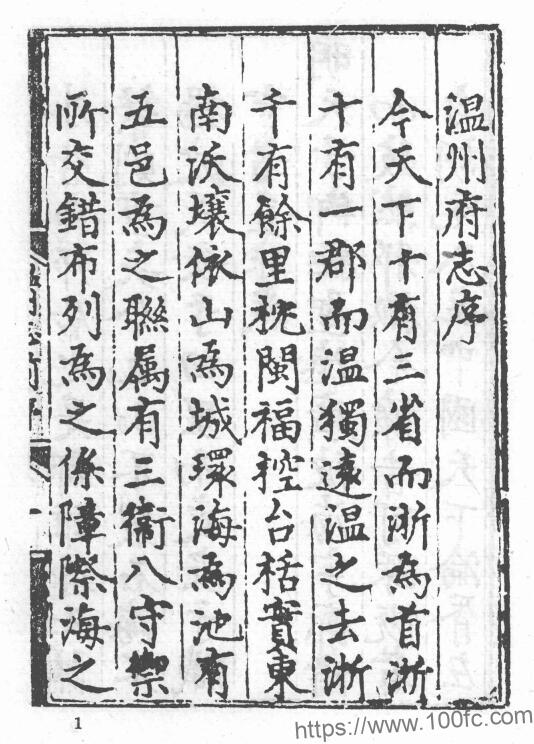 温州府志序
今天下十有三省而浙為首浙
十有一郡而温獨遠温之去浙
千有餘里枕閩福控台栝實東
南沃壤依山為城環海為池有
五邑為之聯属有三衛八守禦
所交錯布列為之保障際海之
1
https://www.100fc.com